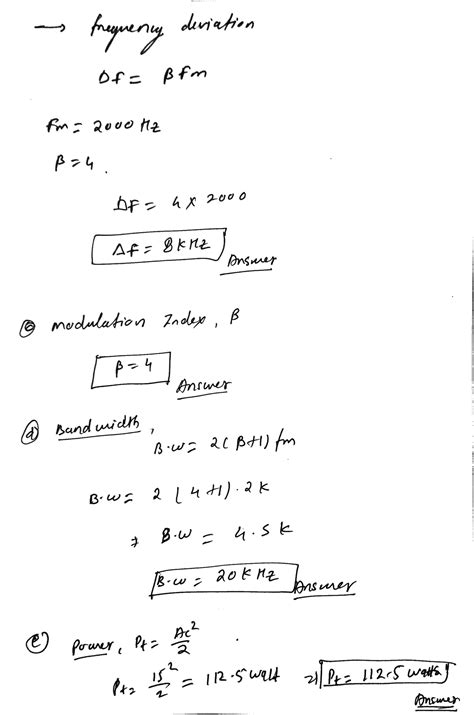 → frequency deviation
Δf = β fm
fm = 2000 Hz
β = 4.
Δf = 4 x 2000
Δf = 8 kHz Answer
(c) modulation Index, β
β = 4
Answer
(d) Bandwidth,
B.w = 2(β+1) fm
B.w = 2 (4+1).2K
⇒ B.w = 4.5K
B.w = 20 KHz Answer
(e) Power, Pt = Ac²/2 .
Pt = 15²/2 = 112.5 watt ⇒ Pt = 112.5 watts
Answer